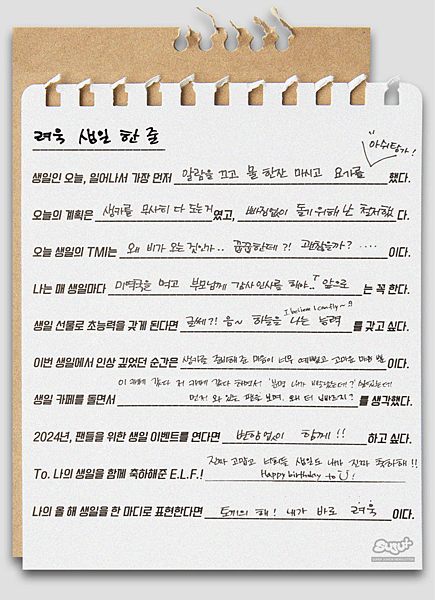 려욱 생일 한 줄
"아쉬탕가!
생일인 오늘, 일어나서 가장 먼저 알람을 끄고 물 한잔 마시고 요가를 했다.
오늘의 계획은 생카를 무사히 다 도는거였고, 빠짐없이 돌기위해 난 철저했다.
오늘 생일의 TMI는 왜 비가 오는것인가.. 꿉꿉한데?! 괜찮을까? .... 이다.
나는 매 생일마다 미역국을 먹고 부모님께 감사인사를 해야.. 앞으로 는 꼭 한다.
I believe I can fly~
생일 선물로 초능력을 갖게 된다면 글쎄?! 음~ 하늘을 나는 능력 를 갖고 싶다.
이번 생일에서 인상 깊었던 순간은 생카를 준비해준 마음이 너무 예쁘고 고마운 이다.
이 카페 갔다 저 카페 갔다 하면서 '분명 내가
생일 카페를 돌면서 먼저 와 있는 팬을 보며, 왜 더 빠르지? 를 생각했다.
2024년, 팬들을 위한 생일 이벤트를 연다면 변함없이 함께!! 하고 싶다.
진짜 고맙고 너희들 생일도 내가 진짜 축하해!!
To. 나의 생일을 함께 축하해준 E.L.F.! Happy birthday to U!
나의 올 해 생일을 한 마디로 표현한다면 토끼의 해! 내가 바로 려욱 이다.